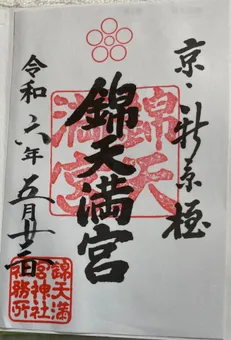 京・新京極
錦天満宮
令和六年五月廿三日
錦天満宮
錦天満
宮神社
社務所